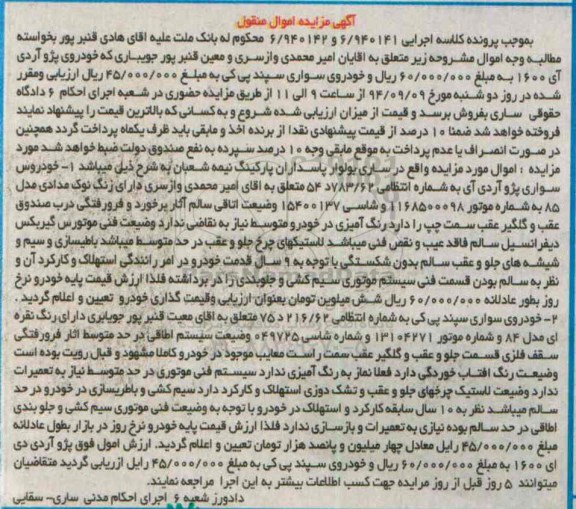 آگهی مزایده اموال منقول
بموجب پرونده کلاسه اجرایی ۶/۹۴۰۱۴۱ و ۶/۹۴۰۱۴۲ محکوم له بانک ملت علیه آقای هادی قنبر پور بخواسته
مطالبه وجه اموال مشروحه زیر متعلق به اقایان امیر محمدی وازسری و معین قنبر پور جویباری که خودروی پژو آردی
آی ۱۶۰۰ به مبلغ ۶۰/۰۰۰/۰۰۰ ریال و خودروی سواری سپند پی کی به مبلغ ۴۵/۰۰۰/۰۰۰ ریال ارزیابی ومقرر
شده در روز دو شنبه مورخ ۹۴/۰۹/۰۹ از ساعت ۹ الی ۱۱ از طریق مزایده حضوری در شعبه اجرای احکام ۶ دادگاه
حقوقی ساری بفروش برسد و قیمت از میزان ارزیابی شده شروع و به کسانی که بالاترین قیمت را پیشنهاد نمایند
فروخته خواهد شد ضمنا ۱۰ درصد از قیمت پیشنهادی نقدا از برنده اخذ و مابقی باید ظرف یکماه پرداخت گردد همچنین
در صورت انصراف یا عدم پرداخت به موقع مابقی وجه ۱۰ درصد سپرده به نفع صندوق دولت ضبط خواهد شد مورد
مزایده : اموال مورد مزایده واقع در ساری بولوار پاسداران پارکینگ نیمه شعبان به شرح ذیل میباشد ۱- خودروس
سواری پژو آردی آی به شماره انتظامی ۷۸۳/۶۲د ۵۴ متعلق به اقای امیر محمدی وازسری دارای رنگ نوک مدادی مدل
۸۵ به شماره موتور ۱۱۶۸۵۰۰۰۹۸ و شاسی ۱۵۴۰۰۱۳۷ وضیعت اتاقی سالم آثار برخورد و فرورفتگی درب صندوق
عقب و گلگیر عقب سمت چپ را دارد رنگ آمیزی در خودرو متوسط نیاز به نقاضی ندارد وضیعت فنی موتورس گیربکس
دیفرانسیل سالم فاقد عیب و نقص فنی میباشد لاستیکهای چرخ جلو و عقب در حد متوسط میباشد باطیسازی و سیم و
شیشه های جلو و عقب سالم بدون شکستگی با توجه به ۹ سال قدمت خودرو در امر رانندگی استهلاک و کارکرد آن و
نظر به سالم بودن قسمت فنی سیستم موتوری سیم کشی و جلوبندی را در برداشته فلذا ارزش قیمت پایه خودرو نرخ
روز بطور عادلانه ۶۰/۰۰۰/۰۰۰ ریال شش میلوین تومان بعنوان ارزیابی وقیمت گذاری خودرو تعیین و اعلام گردید .
۲- خودروی سواری سپند پی کی به شماره انتظامی ۲۱۶/۶۲ د ۷۵ متعلق به اقای معیت قنبر پور جویابری دارای رنگ نقره
ای مدل ۸۴ و شماره موتور ۱۳۱۰۴۲۷۱ و شماره شاسی ۰۴۹۷۲۵ وضیعت سیستم اطاقی در حد متوسط اثار فرورفتگی
سقف فلزی قسمت جلو و عقب و گلگیر عقب سمت راست معایب موجود در خودرو کاملا مشهود و قبل رویت بوده است
وضیعت رنگ افتاب خوردگی دارد فعلا نماز به رنگ آمیزی ندارد سیستم فنی موتوری در حد متوسط نیاز به تعمیرات
ندارد وضیعت لاستیک چرخهای جلو و عقب و تشک دوزی استهلاک و کارکرد دارد سیم کشی و باطریسازی در خودرو در حد
سالم میباشد نظر به ۱۰ سال سابقه کارکرد و استهلاک در خودرو با توجه به وضیعت فنی موتوری سیم کشی و جلو بندی
اطاقی در حد سالم بوده نیازی به تعمیرات و بازسازی ندارد فلذا ارزش قیمت پایه خودرو نرخ روز در بازار بطول عادلانه
مبلغ ۴۵/۰۰۰/۰۰۰ رایل معادل چهار میلیون و پانصد هزار تومان تعیین و اعلام گردید. ارزش امول فوق پژو آردی دی
ای ۱۶۰۰ به مبلغ ۶۰/۰۰۰/۰۰۰ ریال و خودروی سپند پی کی به مبلغ ۴۵/۰۰۰/۰۰۰ رایل ازریابی گردید متقاضیان
میتوانند ۵ روز قبل از روز مرایده جهت کسب اطلاعات بیشتر به این اجرا مراجعه نمایند.
دادورز شعبه ۶ اجرای احکام مدنی ساری- سقایی